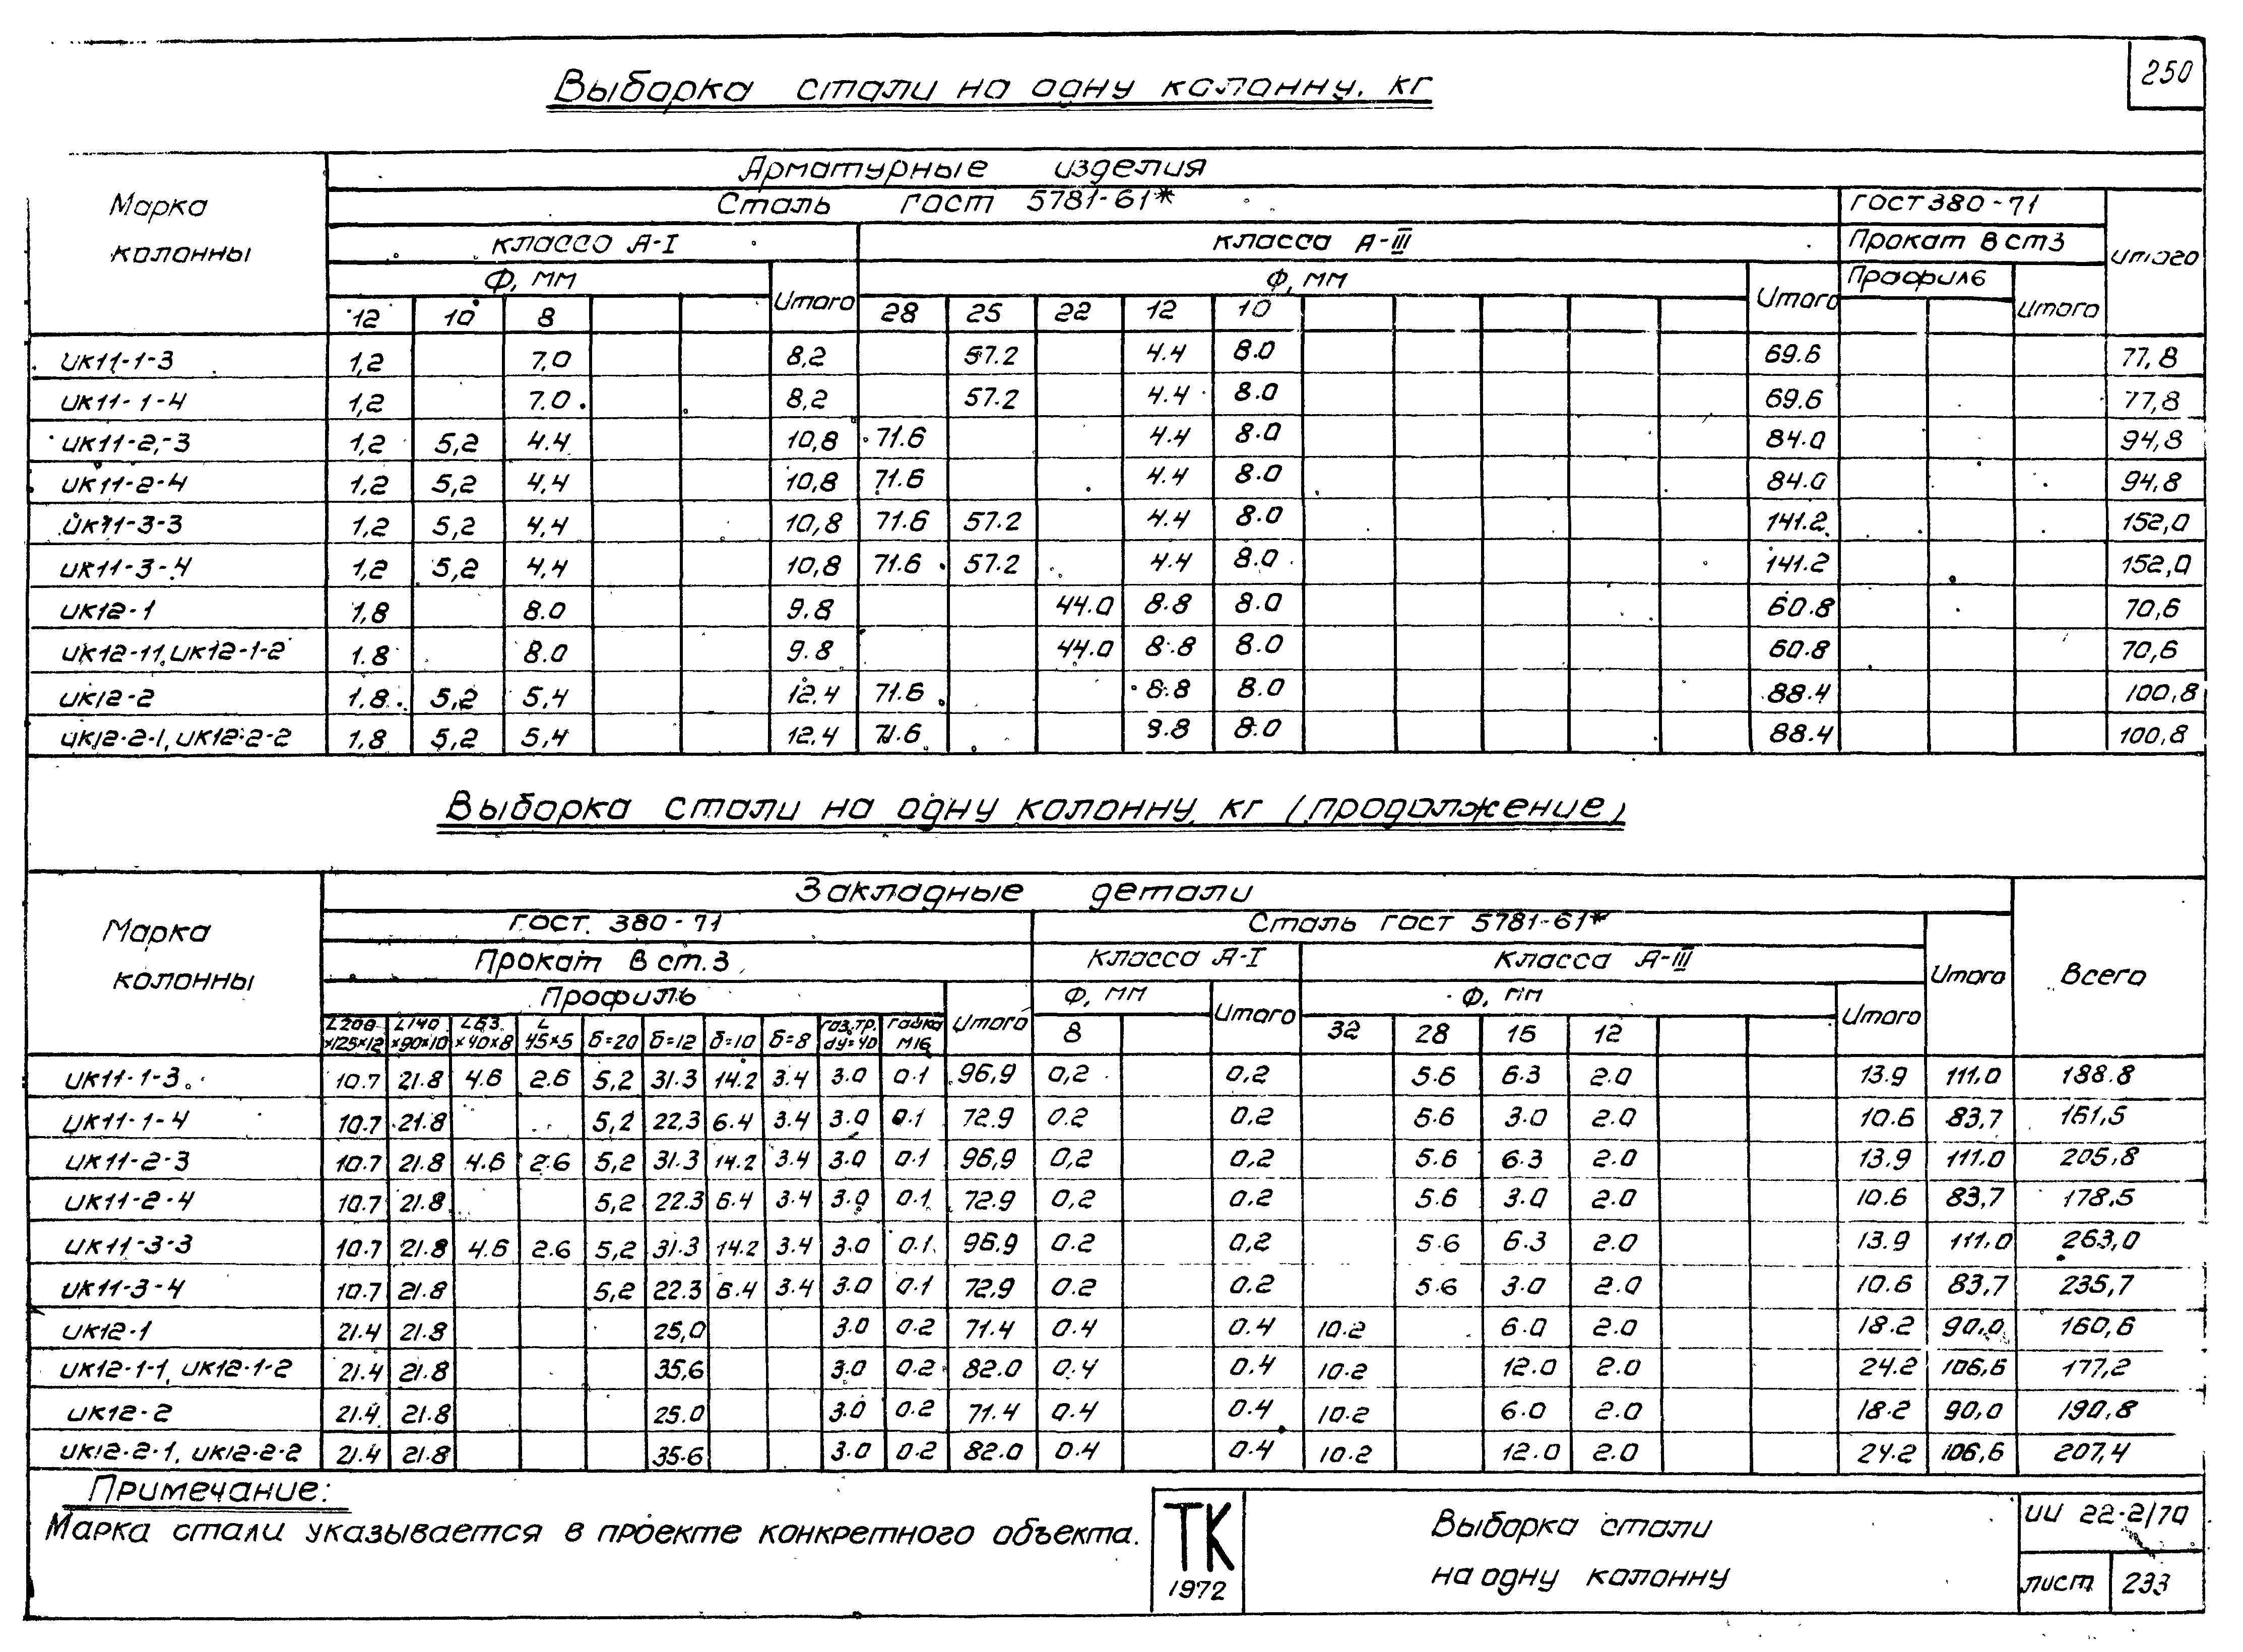 250
Выборка стали на одну колонну, кг
Марка колонны
Арматурные изделия
Сталь гост 5781-61*
гост 380-71
Итого
класса А-I
класса А-III
Прокат В ст3
Ф, мм
Итого
Ф, мм
Итого
Профиль
Итого
12 10 8 28 25 22 12 10
ИК11-1-3 1,2 7,0 8,2 57.2 4.4 8.0 69.6 77,8
ИК11-1-4 1,2 7.0 8,2 57.2 4.4 8.0 69.6 77,8
ИК11-2-3 1,2 5,2 4.4 10,8 71.6 4.4 8.0 84.0 94,8
ИК11-2-4 1,2 5,2 4,4 10,8 71.6 4.4 8.0 84.0 94,8
ИК11-3-3 1,2 5,2 4,4 10,8 71.6 57.2 4.4 8.0 141.2 152,0
ИК11-3-4 1,2 5,2 4,4 10,8 71.6 57.2 4.4 8.0 141.2 152,0
ИК12-1 1,8 8.0 9.8 44.0 8.8 8.0 60.8 70,6
ИК12-11, ИК12-1-2 1.8 8.0 9.8 44.0 8.8 8.0 60.8 70,6
ИК12-2 1.8 5,2 5,4 12.4 71.6 8.8 8.0 88.4 100,8
ИК12-2-1, ИК12-2-2 1.8 5,2 5,4 12,4 71.6 8.8 8.0 88.4 100,8
Выборка стали на одну колонну, кг (продолжение)
Марка колонны
Закладные детали
Всего
гост. 380-71
Сталь гост 5781-61*
Итого
Прокат В ст.3
класса А-I
Класса А-III
Профиль
Итого
Ф, мм
Итого
Ф, мм
Итого
L200×125×12 L140×90×10 L63×40×8 L45×5 δ=20 δ=12 δ=10 δ=8 газ.тр. dy=40 гайка М16 8 32 28 16 12
ИК11-1-3 10.7 21.8 4.6 2.6 5,2 31.3 14.2 3.4 3.0 0.1 96,9 0,2 0,2 5.6 6.3 2.0 13.9 111.0 188.8
ИК11-1-4 10.7 21.8 5,2 22.3 6.4 3.4 3.0 0.1 72.9 0.2 0,2 5.6 3.0 2.0 10.6 83,7 161,5
ИК11-2-3 10.7 21.8 4.6 2.6 5,2 31.3 14.2 3.4 3.0 0.1 96,9 0,2 0,2 5.6 6.3 2.0 13.9 111.0 205,8
ИК11-2-4 10.7 21.8 5,2 22.3 6.4 3.4 3.0 0.1 72.9 0,2 0,2 5.6 3.0 2.0 10.6 83,7 178,5
ИК11-3-3 10.7 21.8 4.6 2.6 5,2 31.3 14.2 3.4 3.0 0.1 96.9 0.2 0,2 5.6 6.3 2.0 13.9 111,0 263,0
ИК11-3-4 10.7 21.8 5,2 22.3 6.4 3.4 3.0 0.1 72.9 0.2 0.2 5.6 3.0 2.0 10.6 83,7 235,7
ИК12-1 21.4 21.8 25,0 3.0 0.2 71.4 0.4 0.4 10.2 6.0 2.0 18.2 90.0 160,6
ИК12-1-1, ИК12-1-2 21.4 21.8 35,6 3.0 0.2 82.0 0.4 0.4 10.2 12.0 2.0 24.2 106,6 177,2
ИК12-2 21.4 21.8 25.0 3.0 0.2 71.4 0.4 0.4 10.2 6.0 2.0 18.2 90,0 190,8
ИК12-2-1, ИК12-2-2 21.4 21.8 35.6 3.0 0.2 82.0 0.4 0.4 10.2 12.0 2.0 24.2 106,6 207,4
Примечание:
Марка стали указывается в проекте конкретного объекта.
ТК
1972
Выборка стали
на одну колонну
ИИ 22-2/70
лист 233